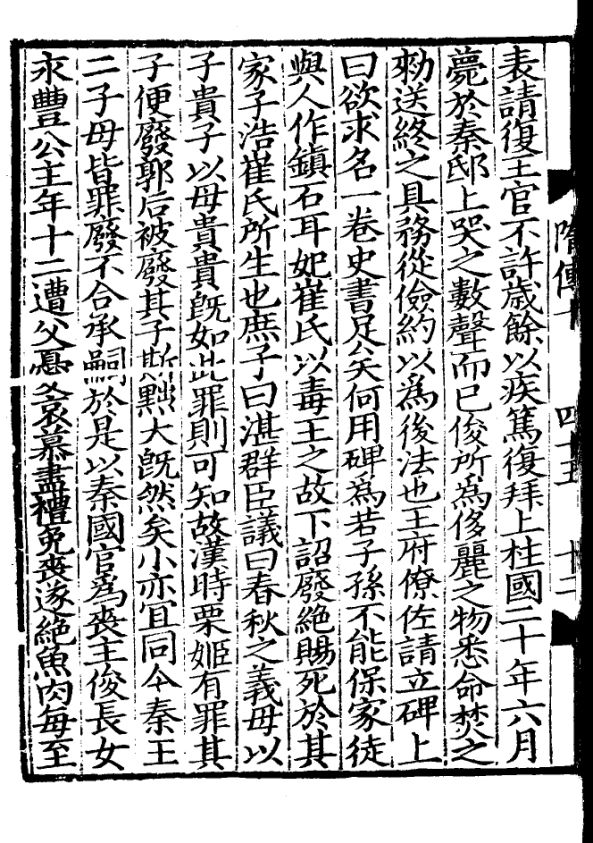 隋傳十 四十五 十二
表請復王官不許歲餘以疾篤復拜上柱國二十年六月
薨於秦邸上哭之數聲而已俊所爲侈麗之物悉命焚之
勑送終之具務從儉約以爲後法也王府僚佐請立碑上
曰欲求名一卷史書足矣何用碑爲若子孫不能保家徒
與人作鎮石耳妃崔氏以毒王之故下詔廢絶賜死於其
家子浩崔氏所生也庶子曰湛群臣議曰春秋之義母以
子貴子以母貴貴旣如此罪則可知故漢時栗姬有罪其
子便廢郭后被廢其子斯黜大旣然矣小亦宜同今秦王
二子母皆罪廢不合承嗣於是以秦國官爲喪主俊長女
永豐公主年十二遭父憂哀慕盡禮免喪遂絶魚肉每至